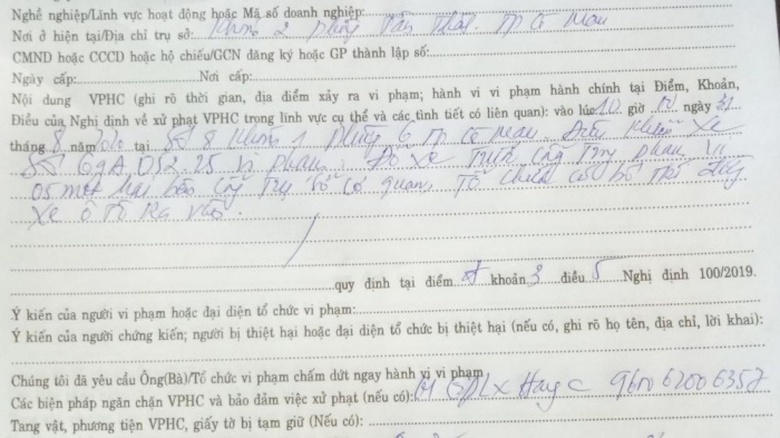 Nghề nghiệp/Lĩnh vực hoạt động hoặc Mã số doanh nghiệp:
Nơi ở hiện tại/Địa chỉ trụ sở: Khóm 2 phường Tân Thành. TP Cà Mau
CMND hoặc CCCD hoặc hộ chiếu/GCN đăng ký hoặc GP thành lập số:
Ngày cấp: Nơi cấp:
Nội dung VPHC (ghi rõ thời gian, địa điểm xảy ra vi phạm; hành vi vi phạm hành chính tại Điểm, Khoản,
Điều của Nghị định về xử phạt VPHC trong lĩnh vực cụ thể và các tình tiết có liên quan): vào lúc 10 giờ 10 ngày 31
tháng 8 năm 2020 tại Số 8 Khóm 1 phường 6 TP Cà Mau. Điều khiển xe
Số 69A 052.25 vi phạm. Đỗ xe trước cổng trong phạm vi
05 mét hai bên cổng trụ sở cơ quan, Tổ chức có bố trí đường
xe ô tô Ra vào.
quy định tại điểm khoản 3 điều 5 Nghị định 100/2019.
Ý kiến của người vi phạm hoặc đại diện tổ chức vi phạm:
Ý kiến của người chứng kiến; người bị thiệt hại hoặc đại diện tổ chức bị thiệt hại (nếu có, ghi rõ họ tên, địa chỉ, lời khai):
Chúng tôi đã yêu cầu Ông(Bà)/Tổ chức vi phạm chấm dứt ngay hành vi vi phạm
Các biện pháp ngăn chặn VPHC và bảo đảm việc xử phạt (nếu có): GPLX Hạng C 960062006357
Tang vật, phương tiện VPHC, giấy tờ bị tạm giữ (Nếu có):